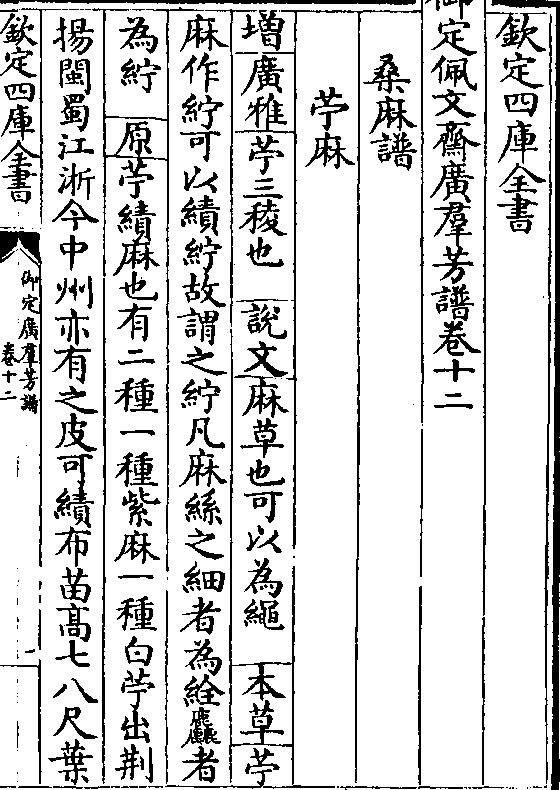 欽定四庫全書
御定佩文齋廣羣芳譜卷十二
桑麻譜
苧麻
増廣雅苧三稜也 說文麻草也可以為繩 本草苧
麻作紵可以績紵故謂之紵凡麻絲之細者為絟麤者
為紵 原苧績麻也有二種一種紫麻一種白苧出荆
揚閩蜀江淅今中州亦有之皮可績布苗髙七八尺葉
欽定四庫全書
御定廣羣芳譜
卷十二
一